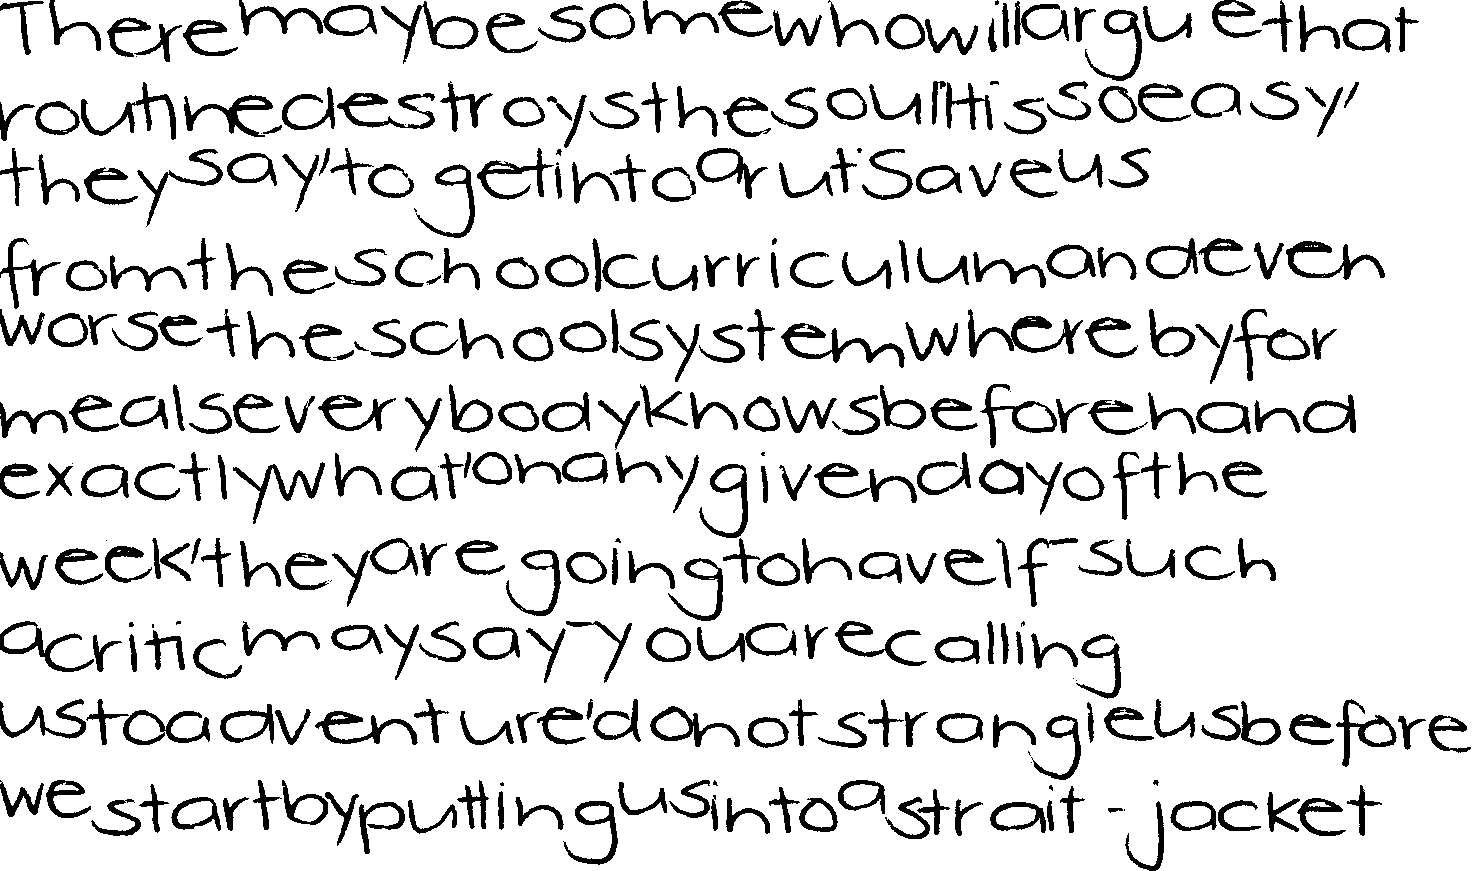 There may be some who will argue that
routine destroys the soul It is so easy'
they say' to get into a rut' Save us
from the school curriculum and even
worse the school system whereby for
meals everybody knows beforehand
exactly what' on any given day of the
week' they are going to have If - such
a critic may say - you are calling
us to adventure' do not strangle us before
we start by putting us into a strait - jacket